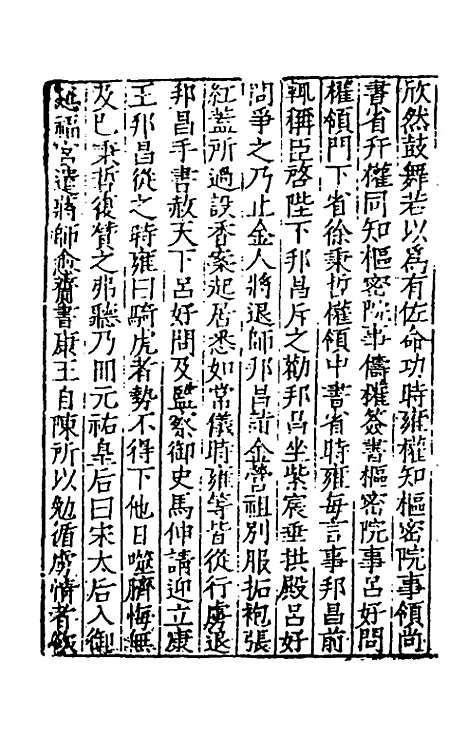 欣然鼓舞若以爲有佐命功時雍權知樞密院事領尚
書省幵權同知樞密院事儔權簽書樞密院事呂好問
權領門下省徐秉哲權領中書省時雍每言事邦昌前
輒稱臣啓陛下邦昌斥之勸邦昌坐紫宸垂拱殿呂好
問爭之乃止金人將退師邦昌詣金營祖別服柘袍張
紅蓋所過設香案起居悉如常儀時雍等皆從行虜退
邦昌手書赦天下呂好問及監察御史馬伸請迎立康
王邦昌從之時雍曰騎虎者勢不得下他日噬臍悔無
及已秉哲復贊之弗聽乃冊元祐皇后曰宋太后入御
延福宮遣蔣師愈齎書康王自陳所以勉循虜情者